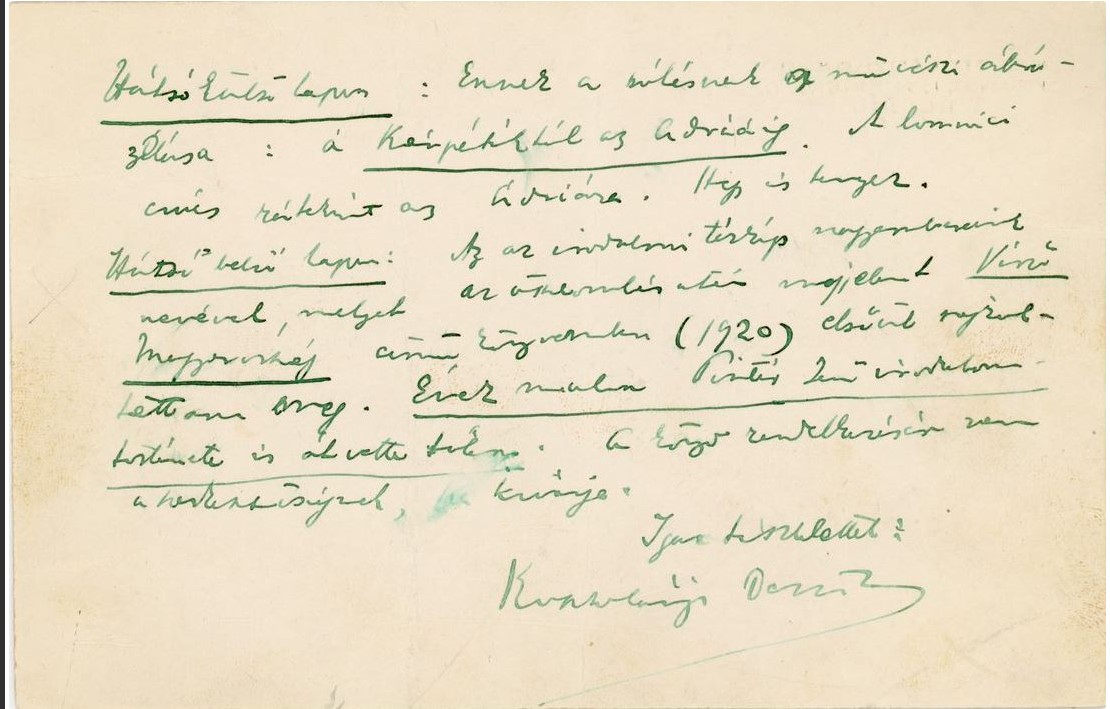 Hátsó külső lapon : Ennek a sílésnek a művészi ábrá-
zolása : a Kárpátoktól az Adriáig. A lomnici
csúcs rátekint az Adriára. Hegy és tenger.
Hátsó belső lapon: Az az irodalmi térkép nagyembereink
nevével, melyet az összeomlás után megjelent Vérző
Magyarország című könyvemben (1920) elsőül rajzol-
tattam meg. Évek mulva Pintér Jenő irodalom-
története is átvette tőlem. A könyv rendelkezésére
a szerkesztőségnek, ha kívánja.
Igaz tisztelettel:
Kosztolányi Dezső